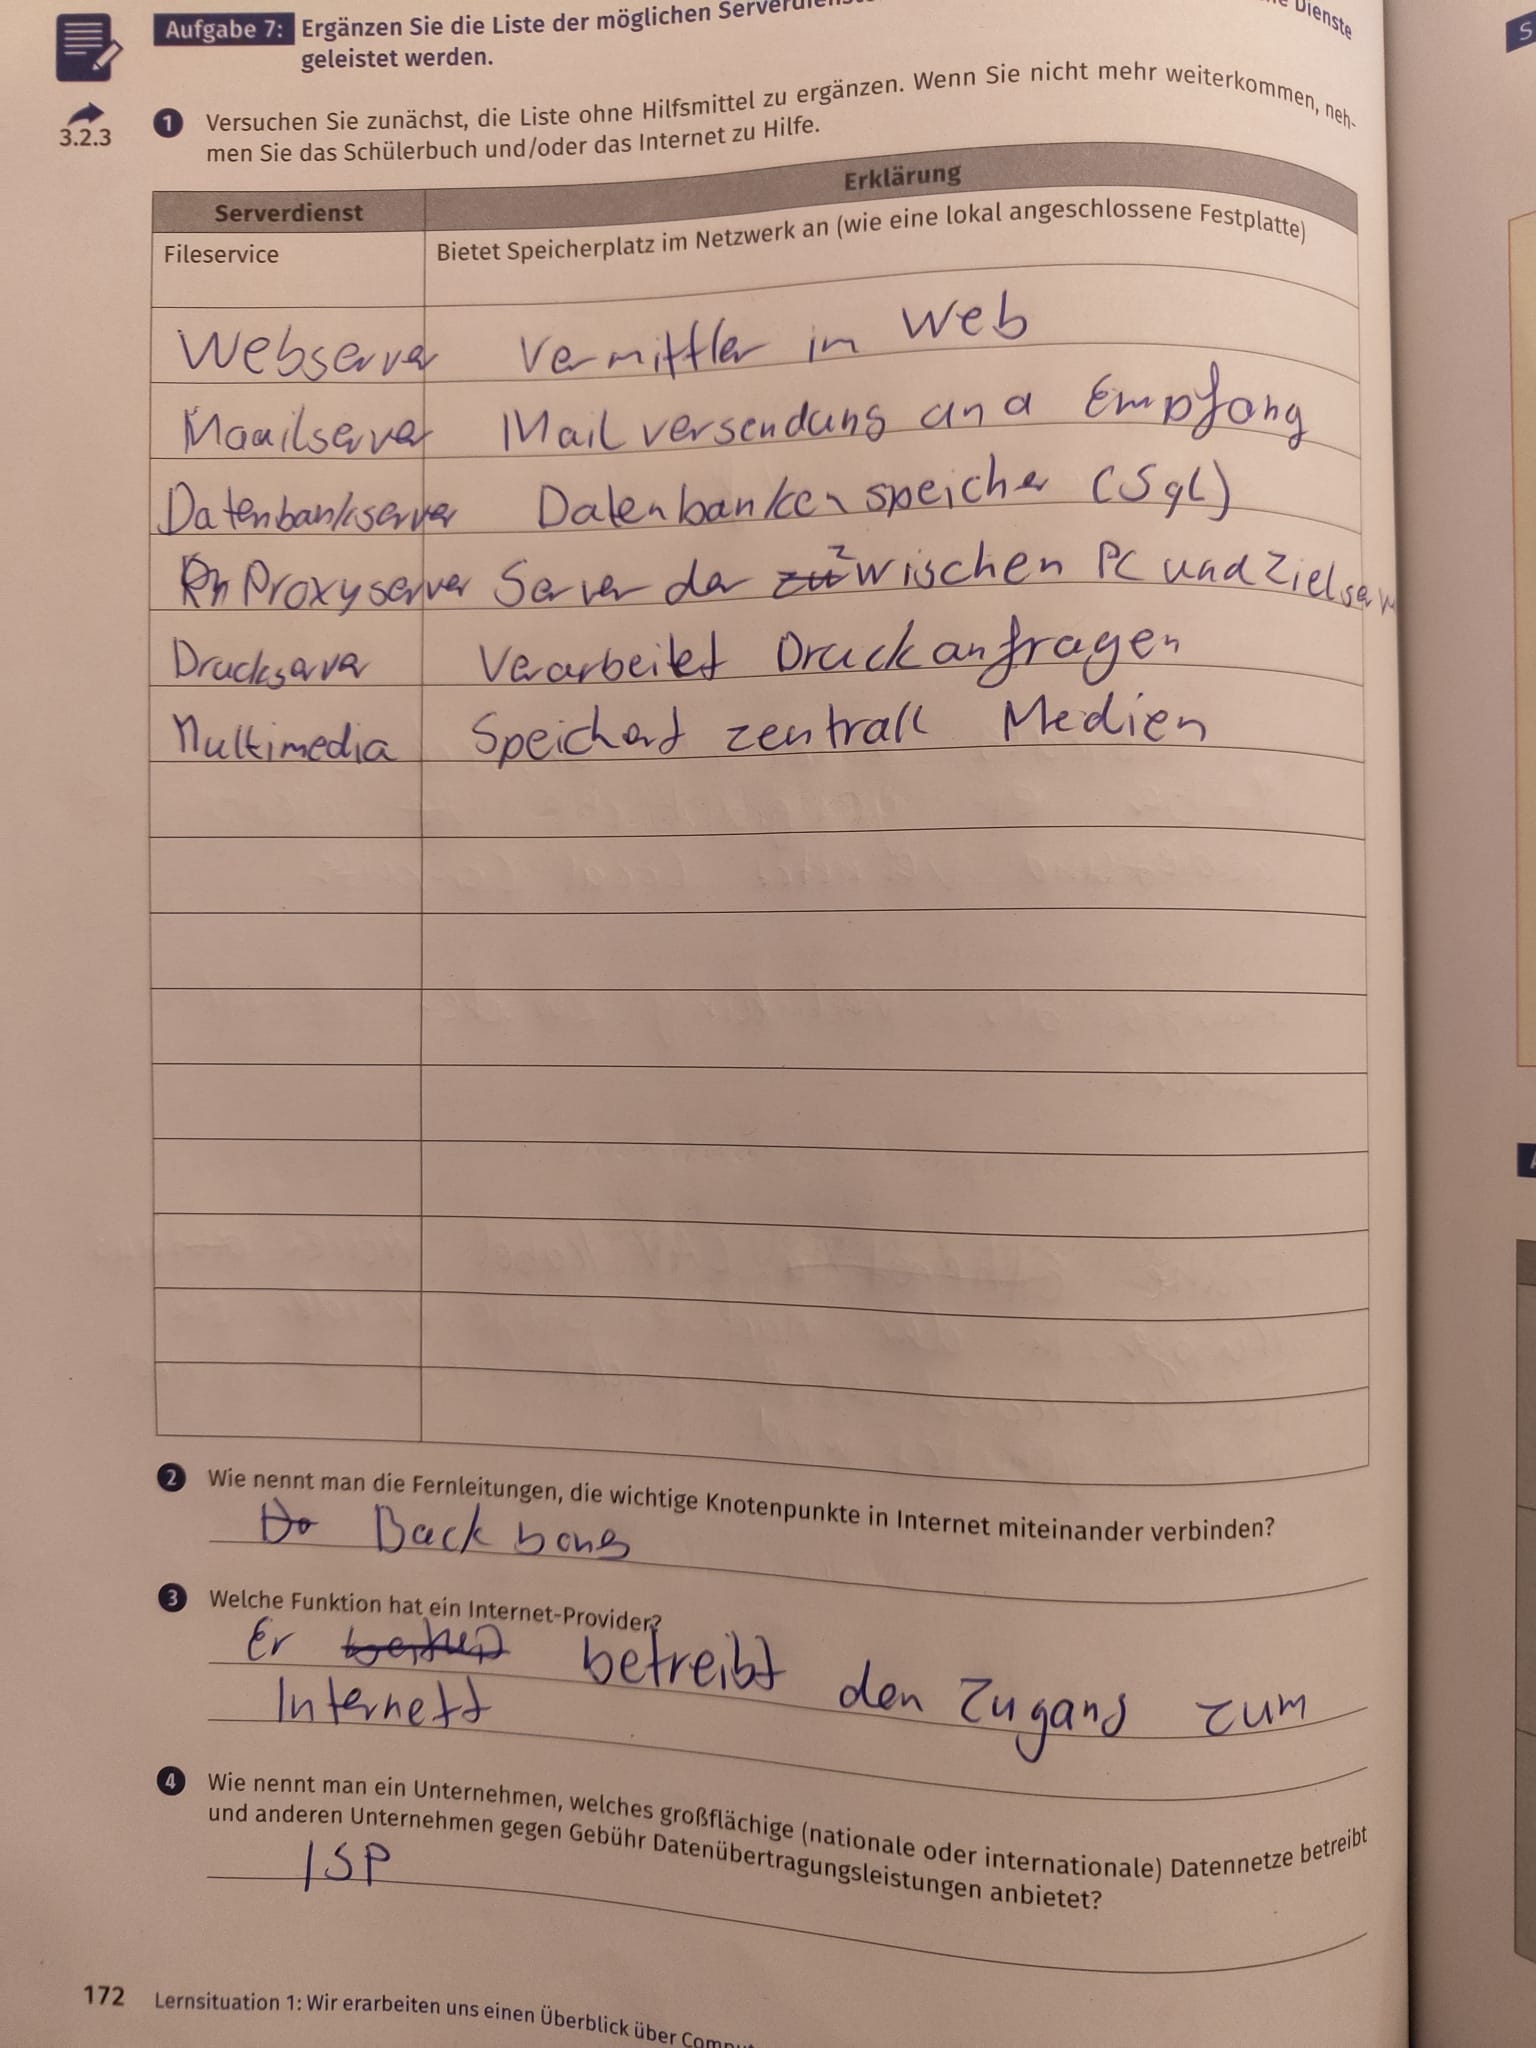 Aufgabe 7: Ergänzen Sie die Liste der möglichen
geleistet werden.
Dienste
3.2.3
1 Versuchen Sie zunächst, die Liste ohne Hilfsmittel zu ergänzen. Wenn Sie nicht mehr weiterkommen, neh-
men Sie das Schülerbuch und/oder das Internet zu Hilfe.
Serverdienst Erklärung
Fileservice Bietet Speicherplatz im Netzwerk an (wie eine lokal angeschlossene Festplatte)
Webserver Vermittler im Web
Maailserver Mail versendung und Empfang
Datenbankserver Datenbanken speicher (Sql)
Proxyserver Server der zwischen PC und Zielserv
Druckserver Verarbeitet Druckanfragen
Multimedia Speichert zentrall Medien
2 Wie nennt man die Fernleitungen, die wichtige Knotenpunkte in Internet miteinander verbinden?
Back bons
3 Welche Funktion hat ein Internet-Provider?
Er betreibt den Zugang zum
Internett
4 Wie nennt man ein Unternehmen, welches großflächige (nationale oder internationale) Datennetze betreibt
und anderen Unternehmen gegen Gebühr Datenübertragungsleistungen anbietet?
ISP
172 Lernsituation 1: Wir erarbeiten uns einen Überblick über